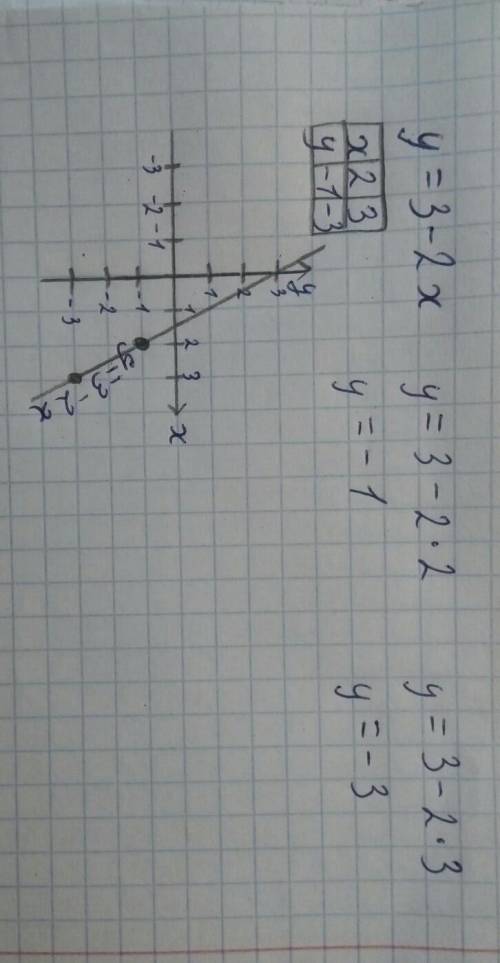 y = 3 - 2x
y = 3 - 2·2
y = 3 - 2·3
y = -1
y = -3
x 2 3
y -1 -3
y
3
2
1
-3 -2 -1
1 2 3
x
-1
-2
-3
y=3-2x